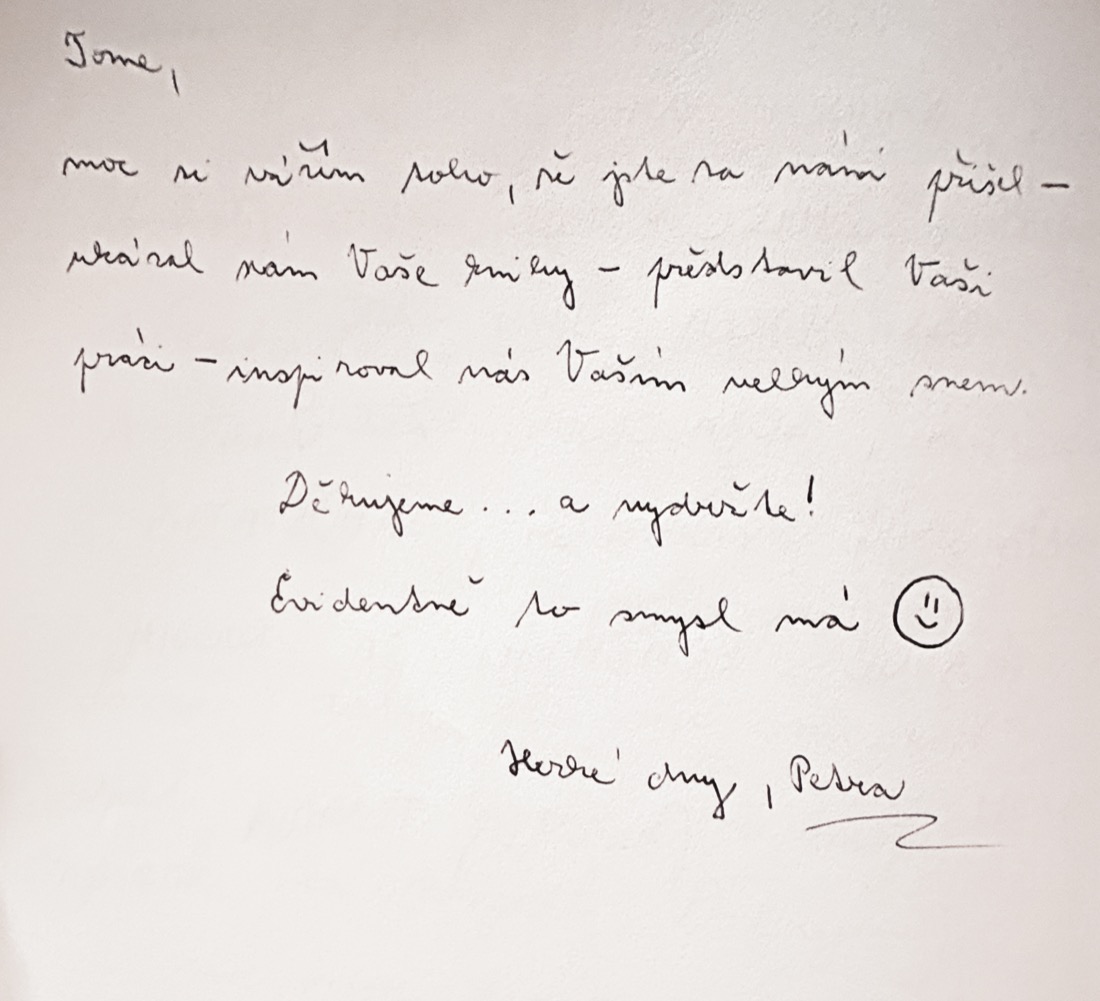 Tome,
moc si vážím toho, že jste za námi přišel –
ukázal nám Vaše knihy – představil Vaši
práci – inspiroval nás Vaším velkým snem.
Děkujeme... a vydržte!
Evidentně to smysl má
Hezké dny, Petra